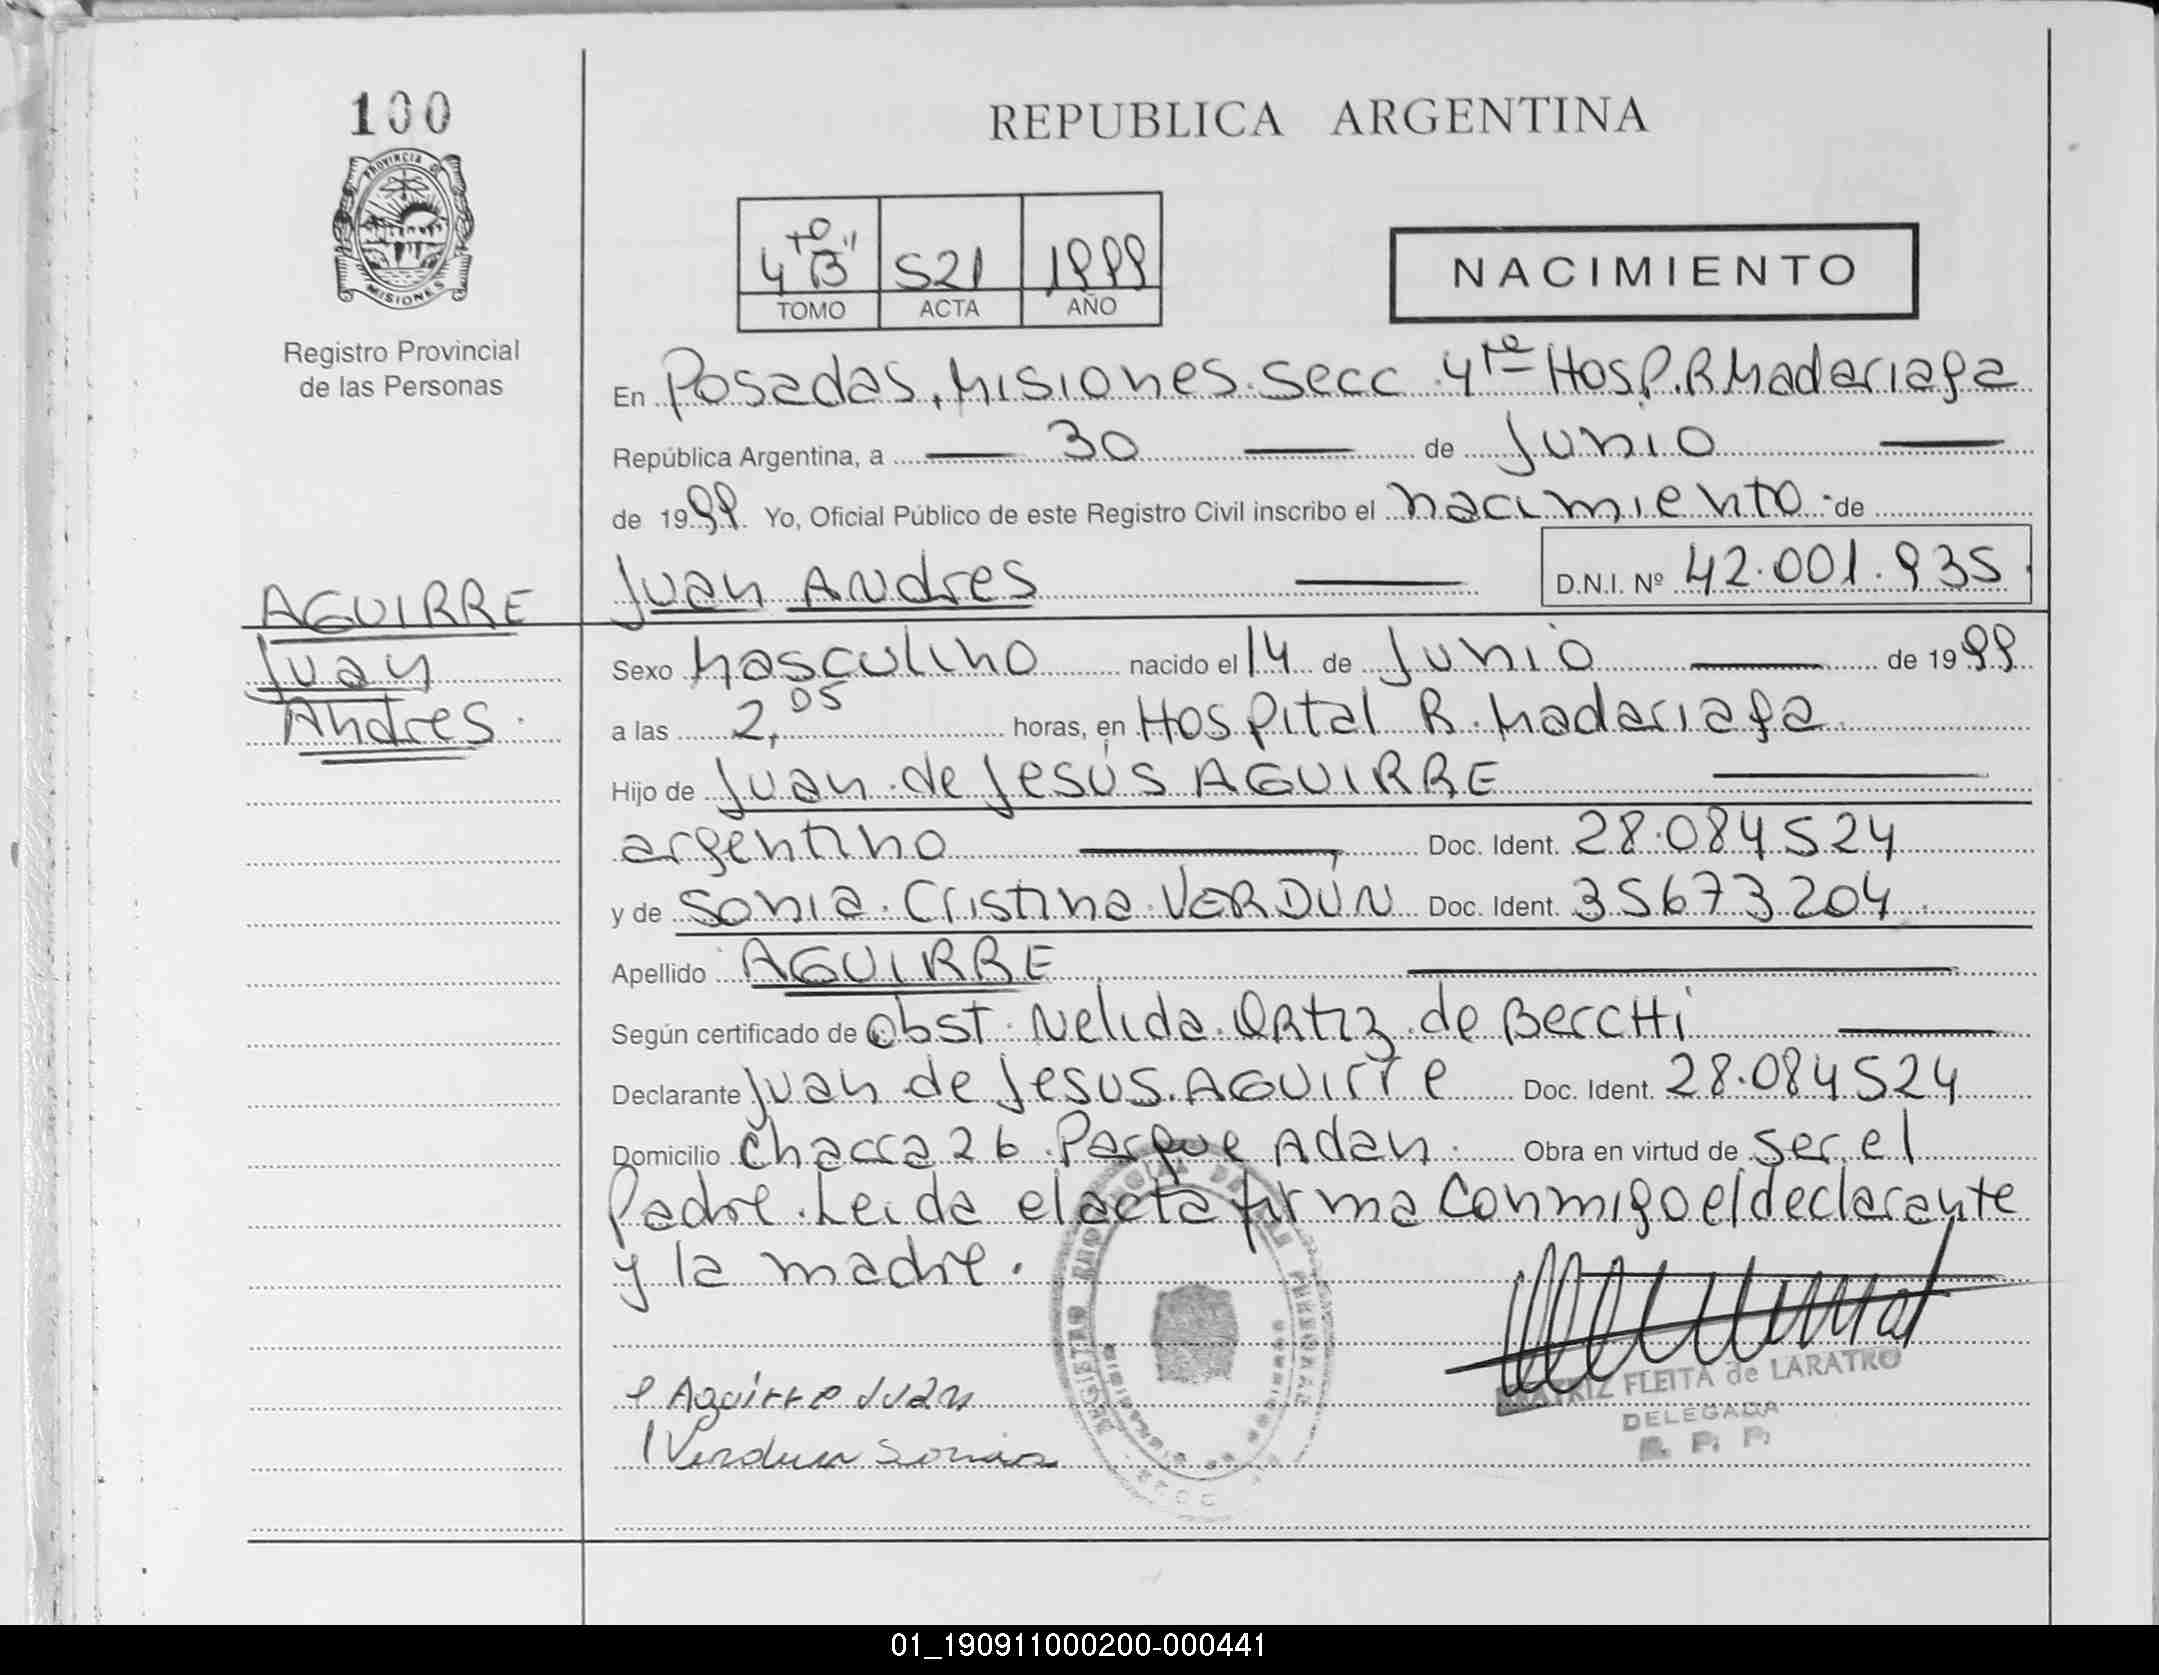 100
PROVINCIA DE
MISIONES
Registro Provincial
de las Personas
REPUBLICA ARGENTINA
4to "B" 521 1999
TOMO ACTA AÑO
NACIMIENTO
En Posadas, Misiones. Secc. 4ta Hosp. R Madariaga
República Argentina, a 30 de Junio
de 1999. Yo, Oficial Público de este Registro Civil inscribo el nacimiento de
Juan Andres D.N.I. Nº 42.001.935
AGUIRRE
Juan
Andres.
Sexo Masculino nacido el 14 de Junio de 1999
a las 2,05 horas, en Hospital R. Madariaga
Hijo de Juan de Jesús AGUIRRE
argentino Doc. Ident. 28.084524
y de Sonia Cristina VERDÚN Doc. Ident. 35673204
Apellido AGUIRRE
Según certificado de Obst. Nelida Ortiz de Bercthi
Declarante Juan de Jesus Aguirre Doc. Ident. 28.084524
Domicilio Chacra 26 Parque Adan. Obra en virtud de ser el
Padre. Leida el acta firma conmigo el declarante
y la madre.
Aguirre Juan
Verdun Sonia
BEATRIZ FLEITA de LARATRO
DELEGADA
R. P. P.
01_190911000200-000441